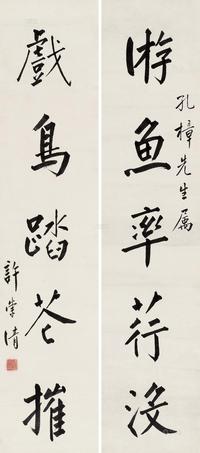 游魚率荇没
孔樟先生属
戲鳥踏花摧
許崇清